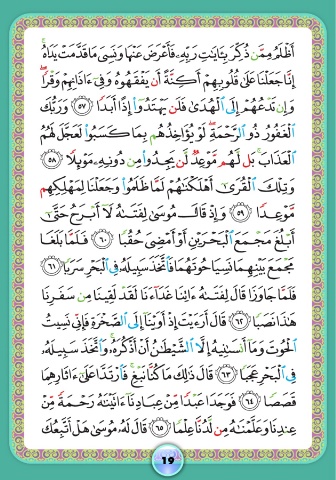 أَظْلَمُ مِمَّن ذُكِّرَ بِـَٔايَٰتِ رَبِّهِۦ فَأَعْرَضَ عَنْهَا وَنَسِىَ مَا قَدَّمَتْ يَدَاهُ ۚ
إِنَّا جَعَلْنَا عَلَىٰ قُلُوبِهِمْ أَكِنَّةً أَن يَفْقَهُوهُ وَفِىٓ ءَاذَانِهِمْ وَقْرًا ۖ
وَإِن تَدْعُهُمْ إِلَى ٱلْهُدَىٰ فَلَن يَهْتَدُوٓا۟ إِذًا أَبَدًا ٥٧ وَرَبُّكَ
ٱلْغَفُورُ ذُو ٱلرَّحْمَةِ ۖ لَوْ يُؤَاخِذُهُم بِمَا كَسَبُوا۟ لَعَجَّلَ لَهُمُ
ٱلْعَذَابَ ۚ بَل لَّهُم مَّوْعِدٌ لَّن يَجِدُوا۟ مِن دُونِهِۦ مَوْئِلًا ٥٨
وَتِلْكَ ٱلْقُرَىٰٓ أَهْلَكْنَٰهُمْ لَمَّا ظَلَمُوا۟ وَجَعَلْنَا لِمَهْلِكِهِم
مَّوْعِدًا ٥٩ وَإِذْ قَالَ مُوسَىٰ لِفَتَىٰهُ لَآ أَبْرَحُ حَتَّىٰٓ
أَبْلُغَ مَجْمَعَ ٱلْبَحْرَيْنِ أَوْ أَمْضِىَ حُقُبًا ٦٠ فَلَمَّا بَلَغَا
مَجْمَعَ بَيْنِهِمَا نَسِيَا حُوتَهُمَا فَٱتَّخَذَ سَبِيلَهُۥ فِى ٱلْبَحْرِ سَرَبًا ٦١
فَلَمَّا جَاوَزَا قَالَ لِفَتَىٰهُ ءَاتِنَا غَدَآءَنَا لَقَدْ لَقِينَا مِن سَفَرِنَا
هَٰذَا نَصَبًا ٦٢ قَالَ أَرَءَيْتَ إِذْ أَوَيْنَآ إِلَى ٱلصَّخْرَةِ فَإِنِّى نَسِيتُ
ٱلْحُوتَ وَمَآ أَنسَىٰنِيهُ إِلَّا ٱلشَّيْطَٰنُ أَنْ أَذْكُرَهُۥ ۚ وَٱتَّخَذَ سَبِيلَهُۥ
فِى ٱلْبَحْرِ عَجَبًا ٦٣ قَالَ ذَٰلِكَ مَا كُنَّا نَبْغِ ۚ فَٱرْتَدَّا عَلَىٰٓ ءَاثَارِهِمَا
قَصَصًا ٦٤ فَوَجَدَا عَبْدًا مِّنْ عِبَادِنَآ ءَاتَيْنَٰهُ رَحْمَةً مِّنْ
عِندِنَا وَعَلَّمْنَٰهُ مِن لَّدُنَّا عِلْمًا ٦٥ قَالَ لَهُۥ مُوسَىٰ هَلْ أَتَّبِعُكَ
19